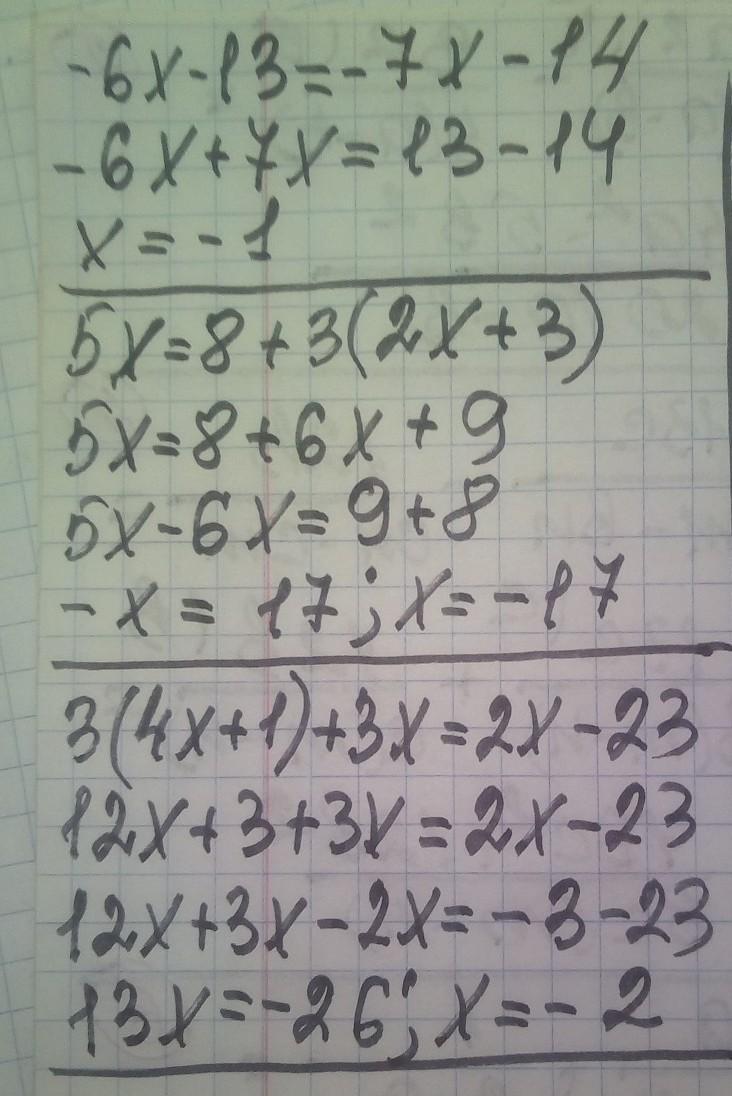 -6x-13=-7x-14
-6x+7x=13-14
x=-1
5x=8+3(2x+3)
5x=8+6x+9
5x-6x=9+8
-x=17; x=-17
3(4x+1)+3x=2x-23
12x+3+3x=2x-23
12x+3x-2x=-3-23
13x=-26; x=-2